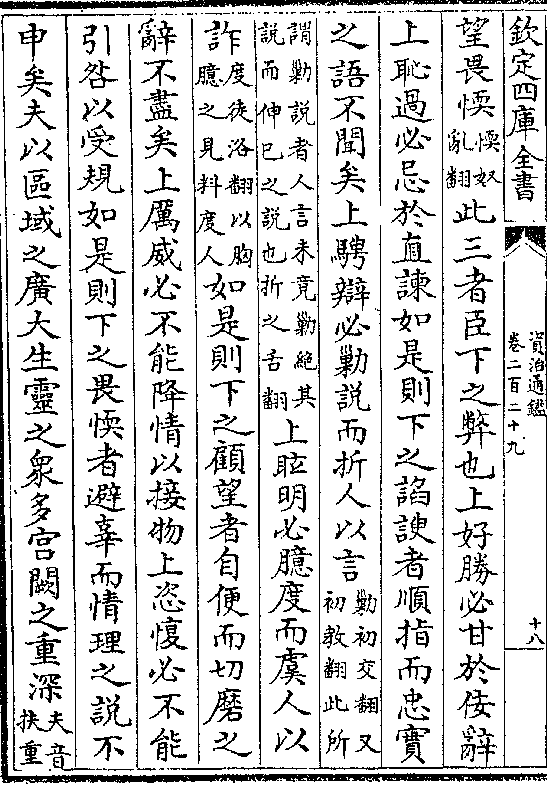 欽定四庫全書
資治通鑑
卷二百二十九
十八
望畏愞愞奴亂翻此三者臣下之弊也上好勝必甘於佞辭
上恥過必忌於直諫如是則下之諂諛者順指而忠實
之語不聞矣上騁辯必勦說而折人以言勦初交翻又初教翻此所
謂勦說者人言未竟勦絶其說而伸已之說也折之舌翻上眩明必臆度而虞人以
詐度徒洛翻以胸臆之見料度人如是則下之顧望者自便而切磨之
辭不盡矣上厲威必不能降情以接物上恣愎必不能
引咎以受規如是則下之畏愞者避辜而情理之說不
申矣夫以區域之廣大生靈之衆多宫闕之重深夫音扶重